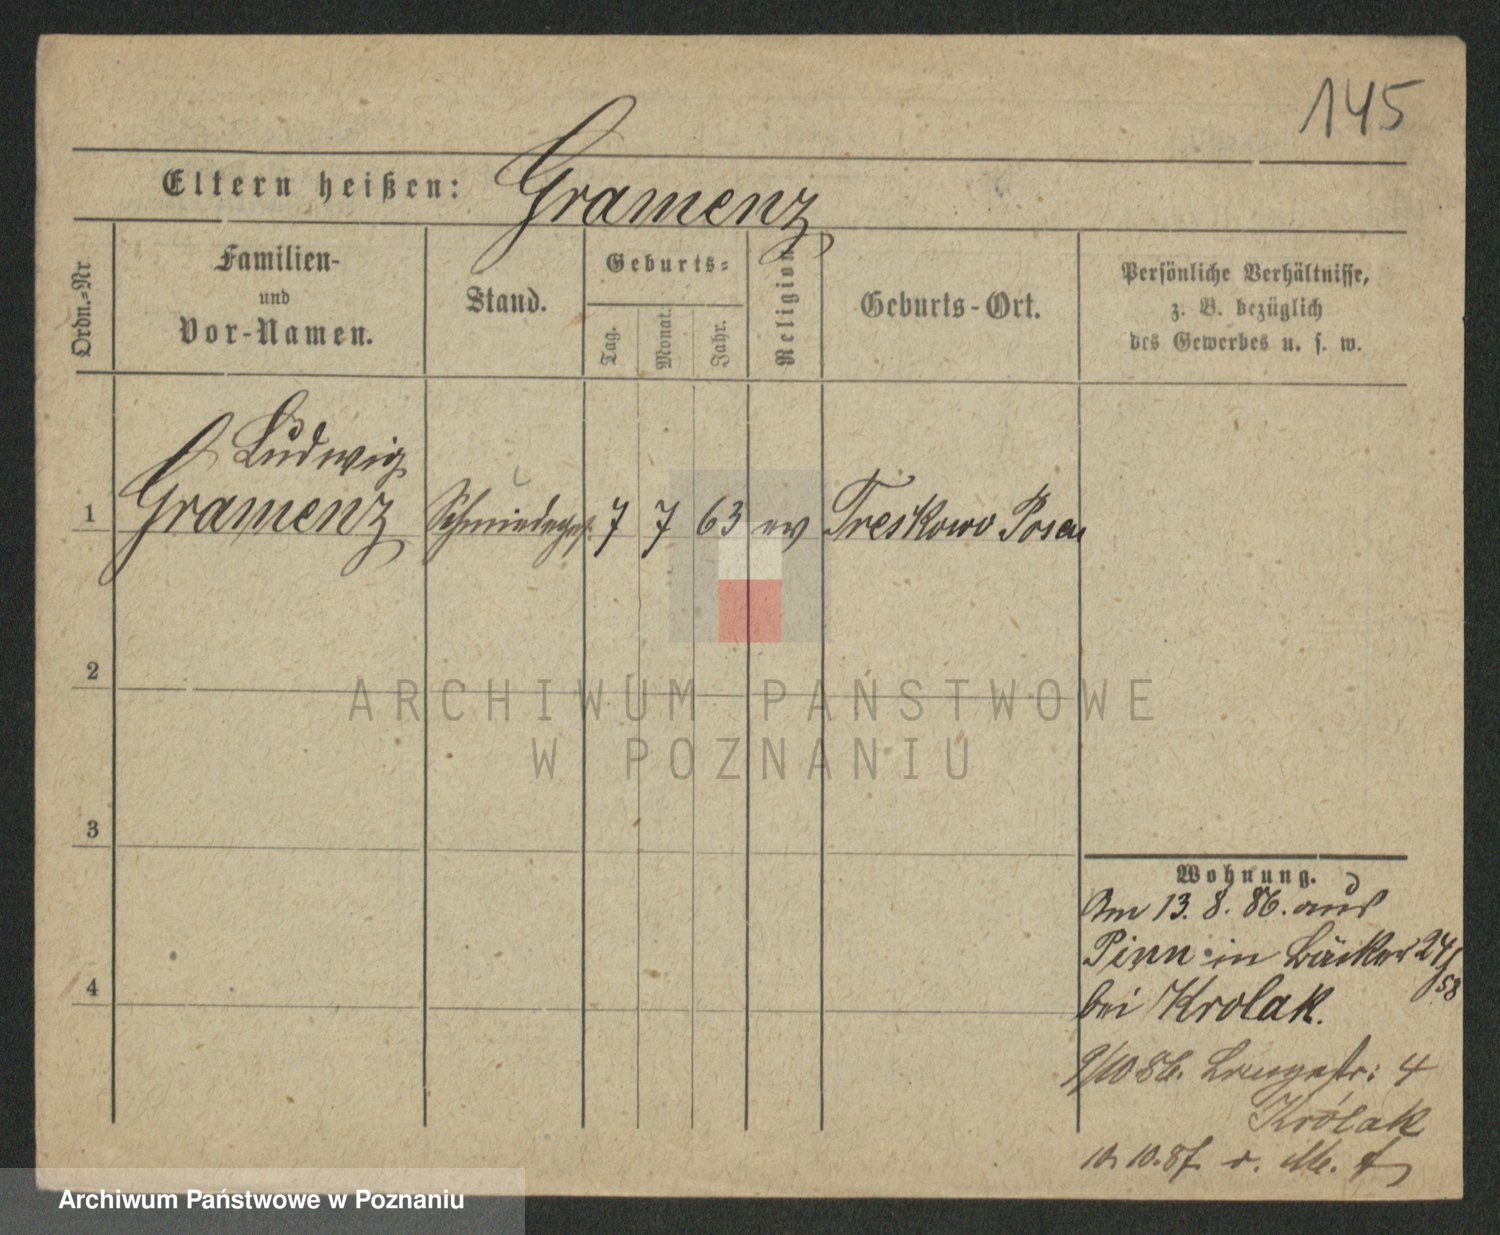 145
Eltern heißen: Gramenz
Ordn.=Nr
Familien-
und
Vor-Namen.
Stand.
Geburts=
Tag.
Monat.
Jahr.
Religion
Geburts-Ort.
Persönliche Verhältnisse,
z. B. bezüglich
des Gewerbes u. s. w.
Ludwig
1 Gramenz Schmiedeges. 7 7 63 ev Treskowo Posen
2
ARCHIWUM PAŃSTWOWE
W POZNANIU
3
Wohnung.
Am 13. 8. 86. aus
Pinn in Bäcker 24/58
4
bei Krolak.
9/10 86. Langestr: 4
Królak
10. 10. 87
Archiwum Państwowe w Poznaniu